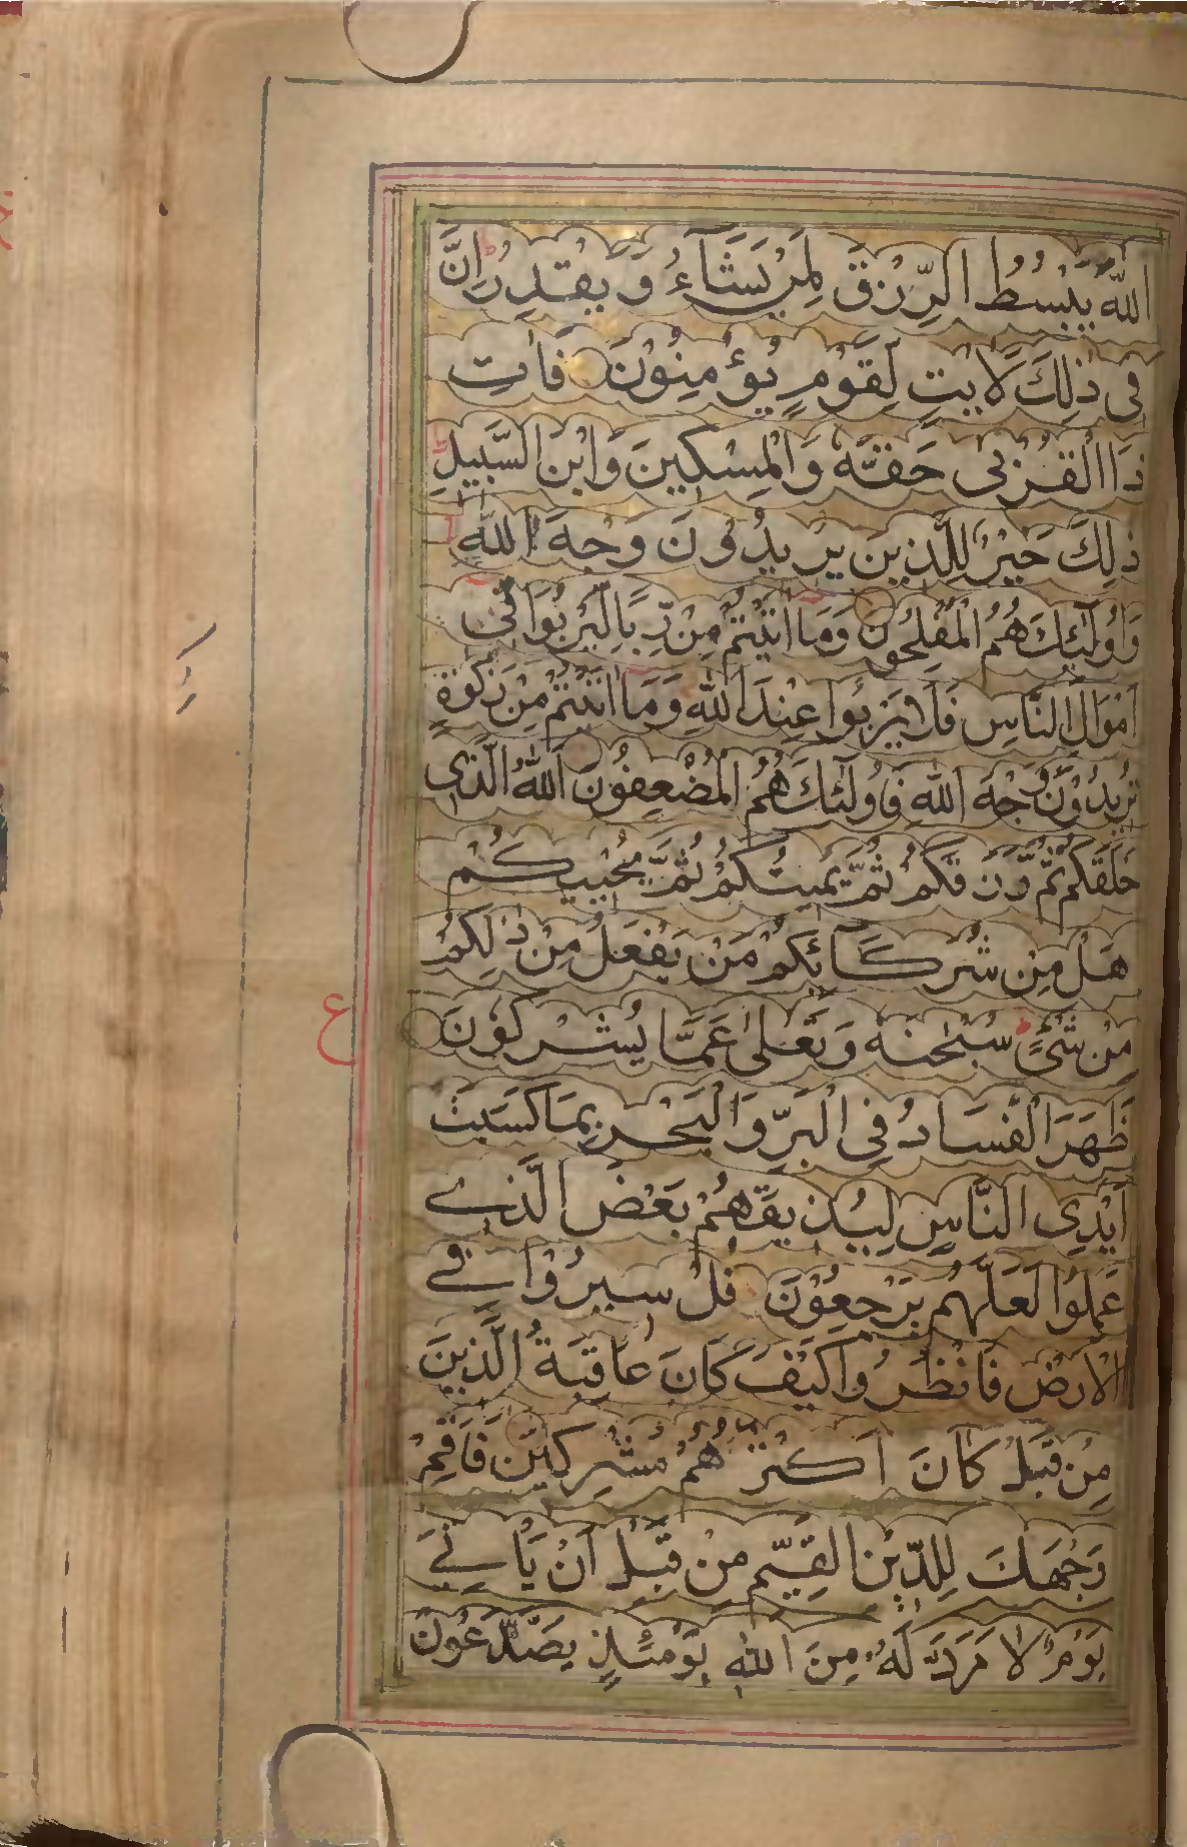 اللّٰهَ يَبْسُطُ الرِّزْقَ لِمَنْ يَشَآءُ وَ يَقْدِرُ ط اِنَّ
فِى ذٰلِكَ لَاٰيٰتٍ لِّقَوْمٍ يُؤْمِنُوْنَ فَاٰتِ
ذَا الْقُرْبٰى حَقَّهٗ وَالْمِسْكِيْنَ وَابْنَ السَّبِيْلِ ط
ذٰلِكَ خَيْرٌ لِّلَّذِيْنَ يُرِيْدُوْنَ وَجْهَ اللّٰهِ
وَاُولٰٓئِكَ هُمُ الْمُفْلِحُوْنَ وَمَا اٰتَيْتُمْ مِنْ رِّبًا لِّيَرْبُوَا۟ فِىْ
اَمْوَالِ النَّاسِ فَلَا يَرْبُوا عِنْدَ اللّٰهِ وَمَا اٰتَيْتُمْ مِنْ زَكٰوةٍ
تُرِيْدُوْنَ وَجْهَ اللّٰهِ فَاُولٰٓئِكَ هُمُ الْمُضْعِفُوْنَ اَللّٰهُ الَّذِى
خَلَقَكُمْ ثُمَّ رَزَقَكُمْ ثُمَّ يُمِيْتُكُمْ ثُمَّ يُحْيِيْكُمْ
هَلْ مِنْ شُرَكَآئِكُمْ مَنْ يَفْعَلُ مِنْ ذٰلِكُمْ
مِنْ شَىْءٍ ط سُبْحٰنَهٗ وَ تَعٰلٰى عَمَّا يُشْرِكُوْنَ
ع
ظَهَرَ الْفَسَادُ فِى الْبَرِّ وَ الْبَحْرِ بِمَا كَسَبَتْ
اَيْدِى النَّاسِ لِيُذِيْقَهُمْ بَعْضَ الَّذِے
عَمِلُوْا لَعَلَّهُمْ يَرْجِعُوْنَ قُلْ سِيْرُوْا فِے
الْاَرْضِ فَانْظُرُوْا كَيْفَ كَانَ عَاقِبَةُ الَّذِيْنَ
مِنْ قَبْلُ كَانَ اَكْثَرُهُمْ مُشْرِكِيْنَ فَاَقِمْ
وَجْهَكَ لِلدِّيْنِ الْقَيِّمِ مِنْ قَبْلِ اَنْ يَاْتِےَ
يَوْمٌ لَا مَرَدَّ لَهٗ مِنَ اللّٰهِ يَوْمَئِذٍ يَصَّدَّعُوْنَ